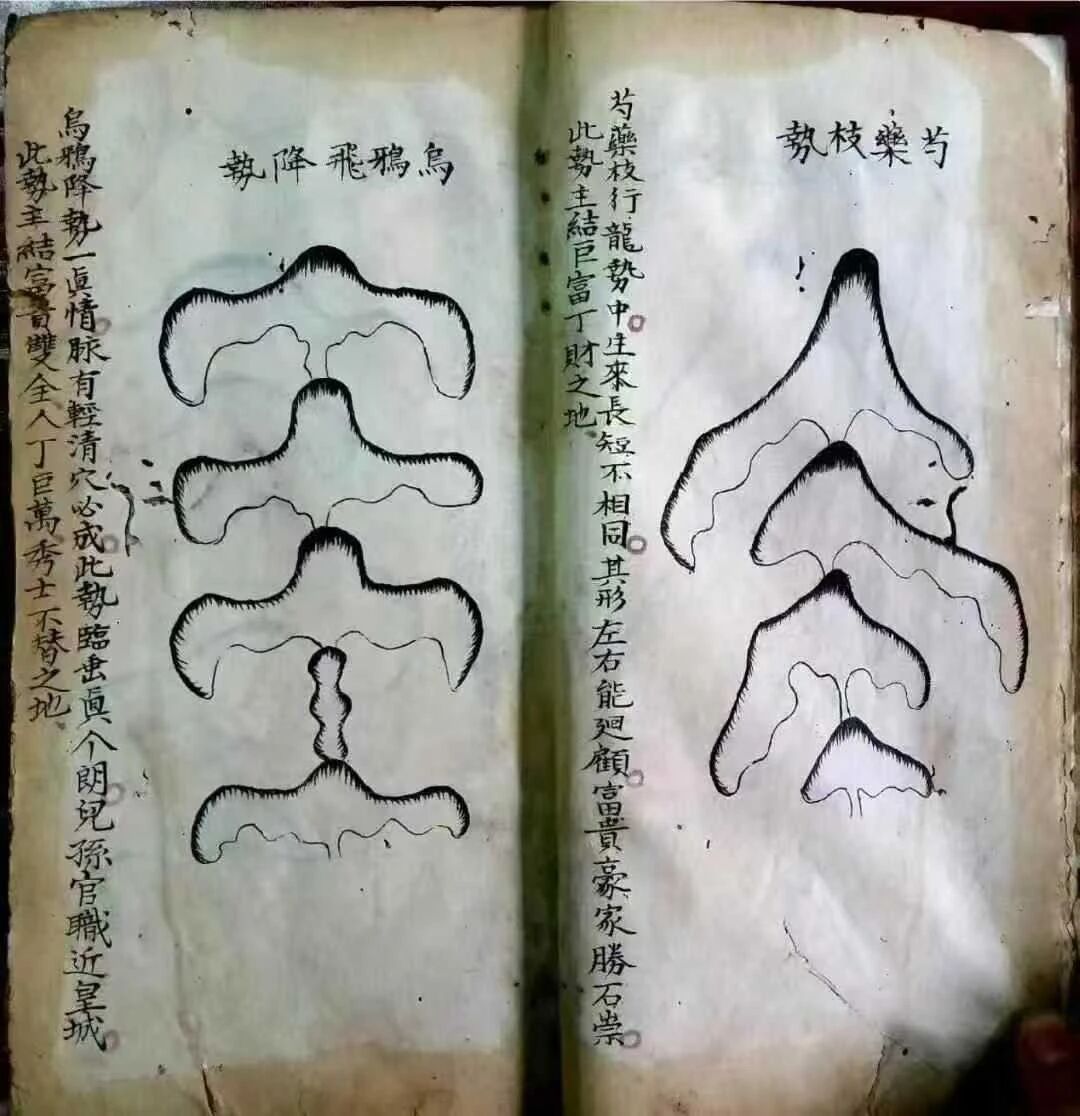 芍藥枝勢
芍藥枝行龍勢中生來長短不相同其形左右能廻顧富貴豪家勝石崇
此勢主結巨富丁財之地
烏鴉飛降勢
烏鴉降勢一眞情脉有輕清穴必成此勢臨垂眞个朗兒孫官職近皇城
此勢主結富貴雙全人丁巨萬秀士不替之地